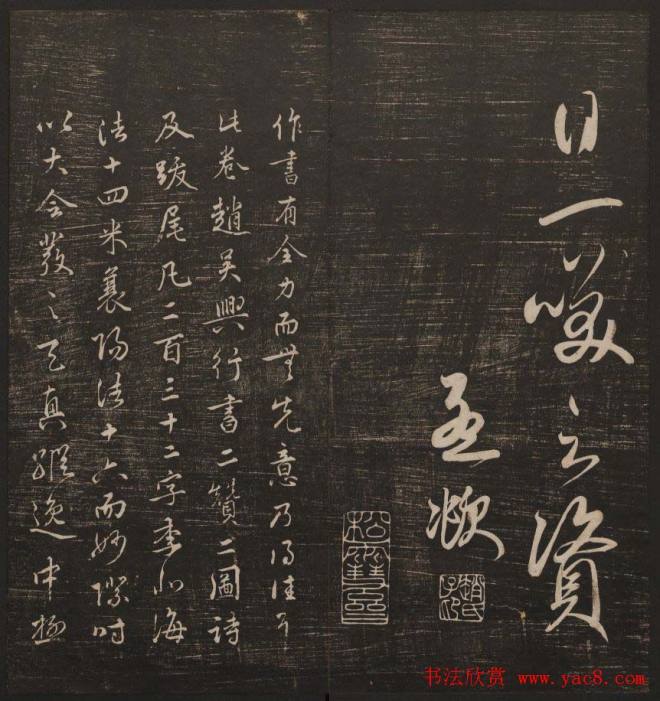 日一咲之資
孟頫
趙氏子昂
松雪齋
作書有全力而無先意乃得佳耳
此卷趙吳興行書二贊二圖詩
及跋尾凡二百三十二字李北海
法十四米襄陽法十六而妙際時
以大令發之天真縱逸中極
书法欣赏 www.yac8.com